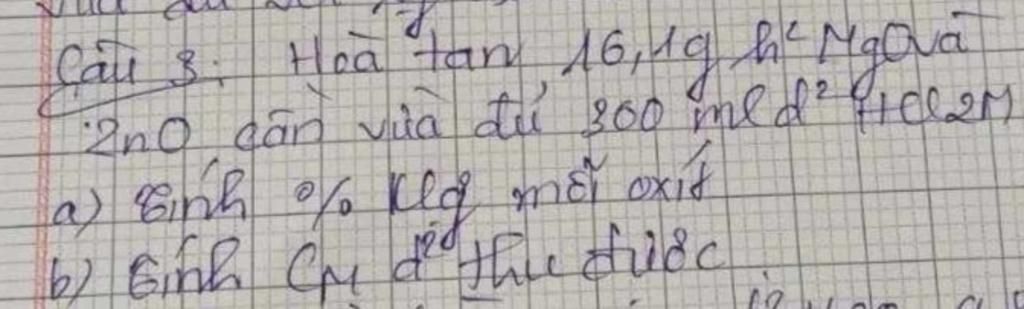 Câu 3: Hoà tan 16,1g h² MgO và
ZnO cần vừa đủ 300 ml d² HCl 2M
a) tính % klg mỗi oxit
b) tính CM d² thu được